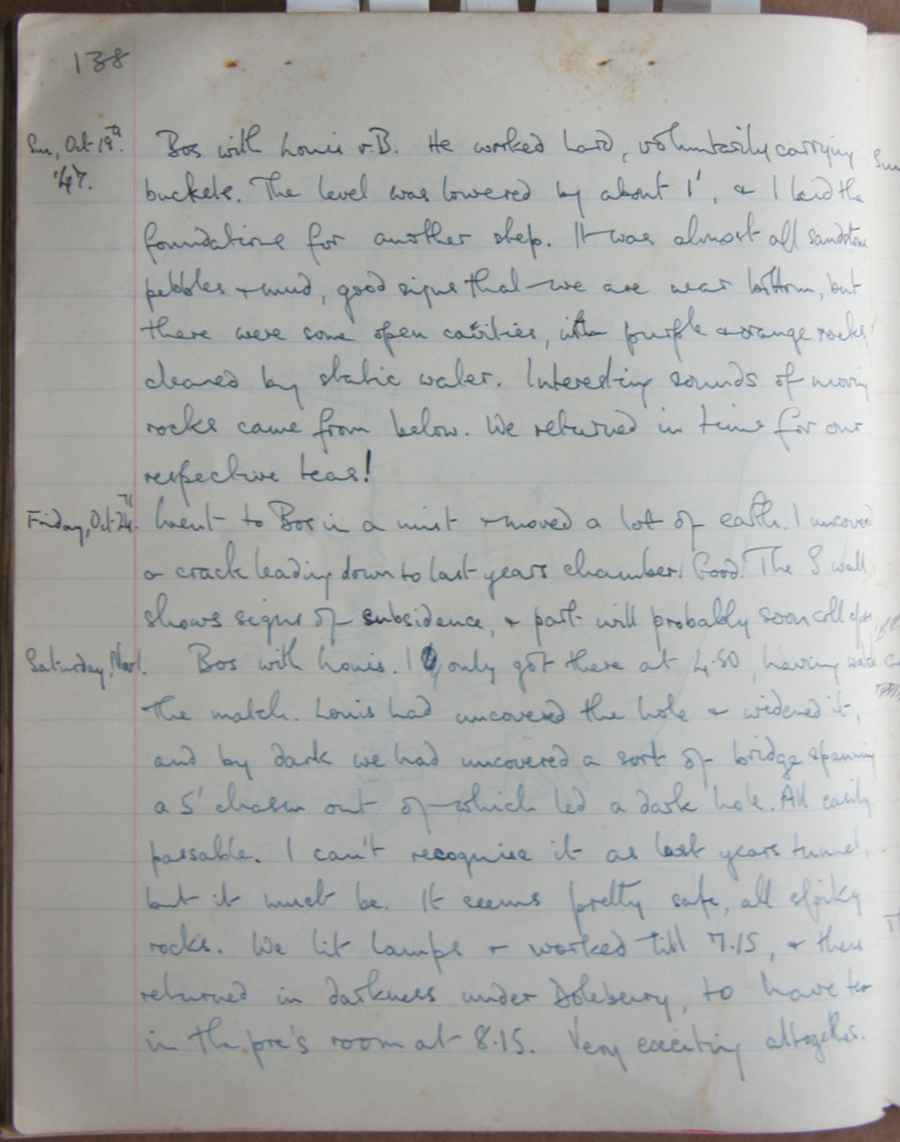 138
Sun, Oct 19th. '47. Bos with Louis & B. He worked hard, voluntarily carrying
buckets. The level was lowered by about 1', & I laid the
foundations for another step. It was almost all sandstone
pebbles & mud, good signs that we are near bottom, but
there were some open cavities, with purple & orange rocks
cleaned by static water. Interesting sounds of moving
rocks came from below. We returned in time for our
respective teas!
Friday, Oct 24th. Went to Bos in a mist & moved a lot of earth. I uncovered
a crack leading down to last years chamber. Good. The S wall
shows signs of subsidence, & part will probably soon collapse
Saturday, Nov 1. Bos with Louis. I only got there at 4.50, having
the match. Louis had uncovered the hole & widened it,
and by dark we had uncovered a sort of bridge spanning
a 5' chasm out of which led a dark hole. All easily
passable. I can't recognise it as last years tunnel,
but it must be. It seems pretty safe, all spiky
rocks. We lit lamps & worked till 7.15, & then
returned in darkness under Dolebury, to have tea
in room at 8.15. Very exciting altogether.